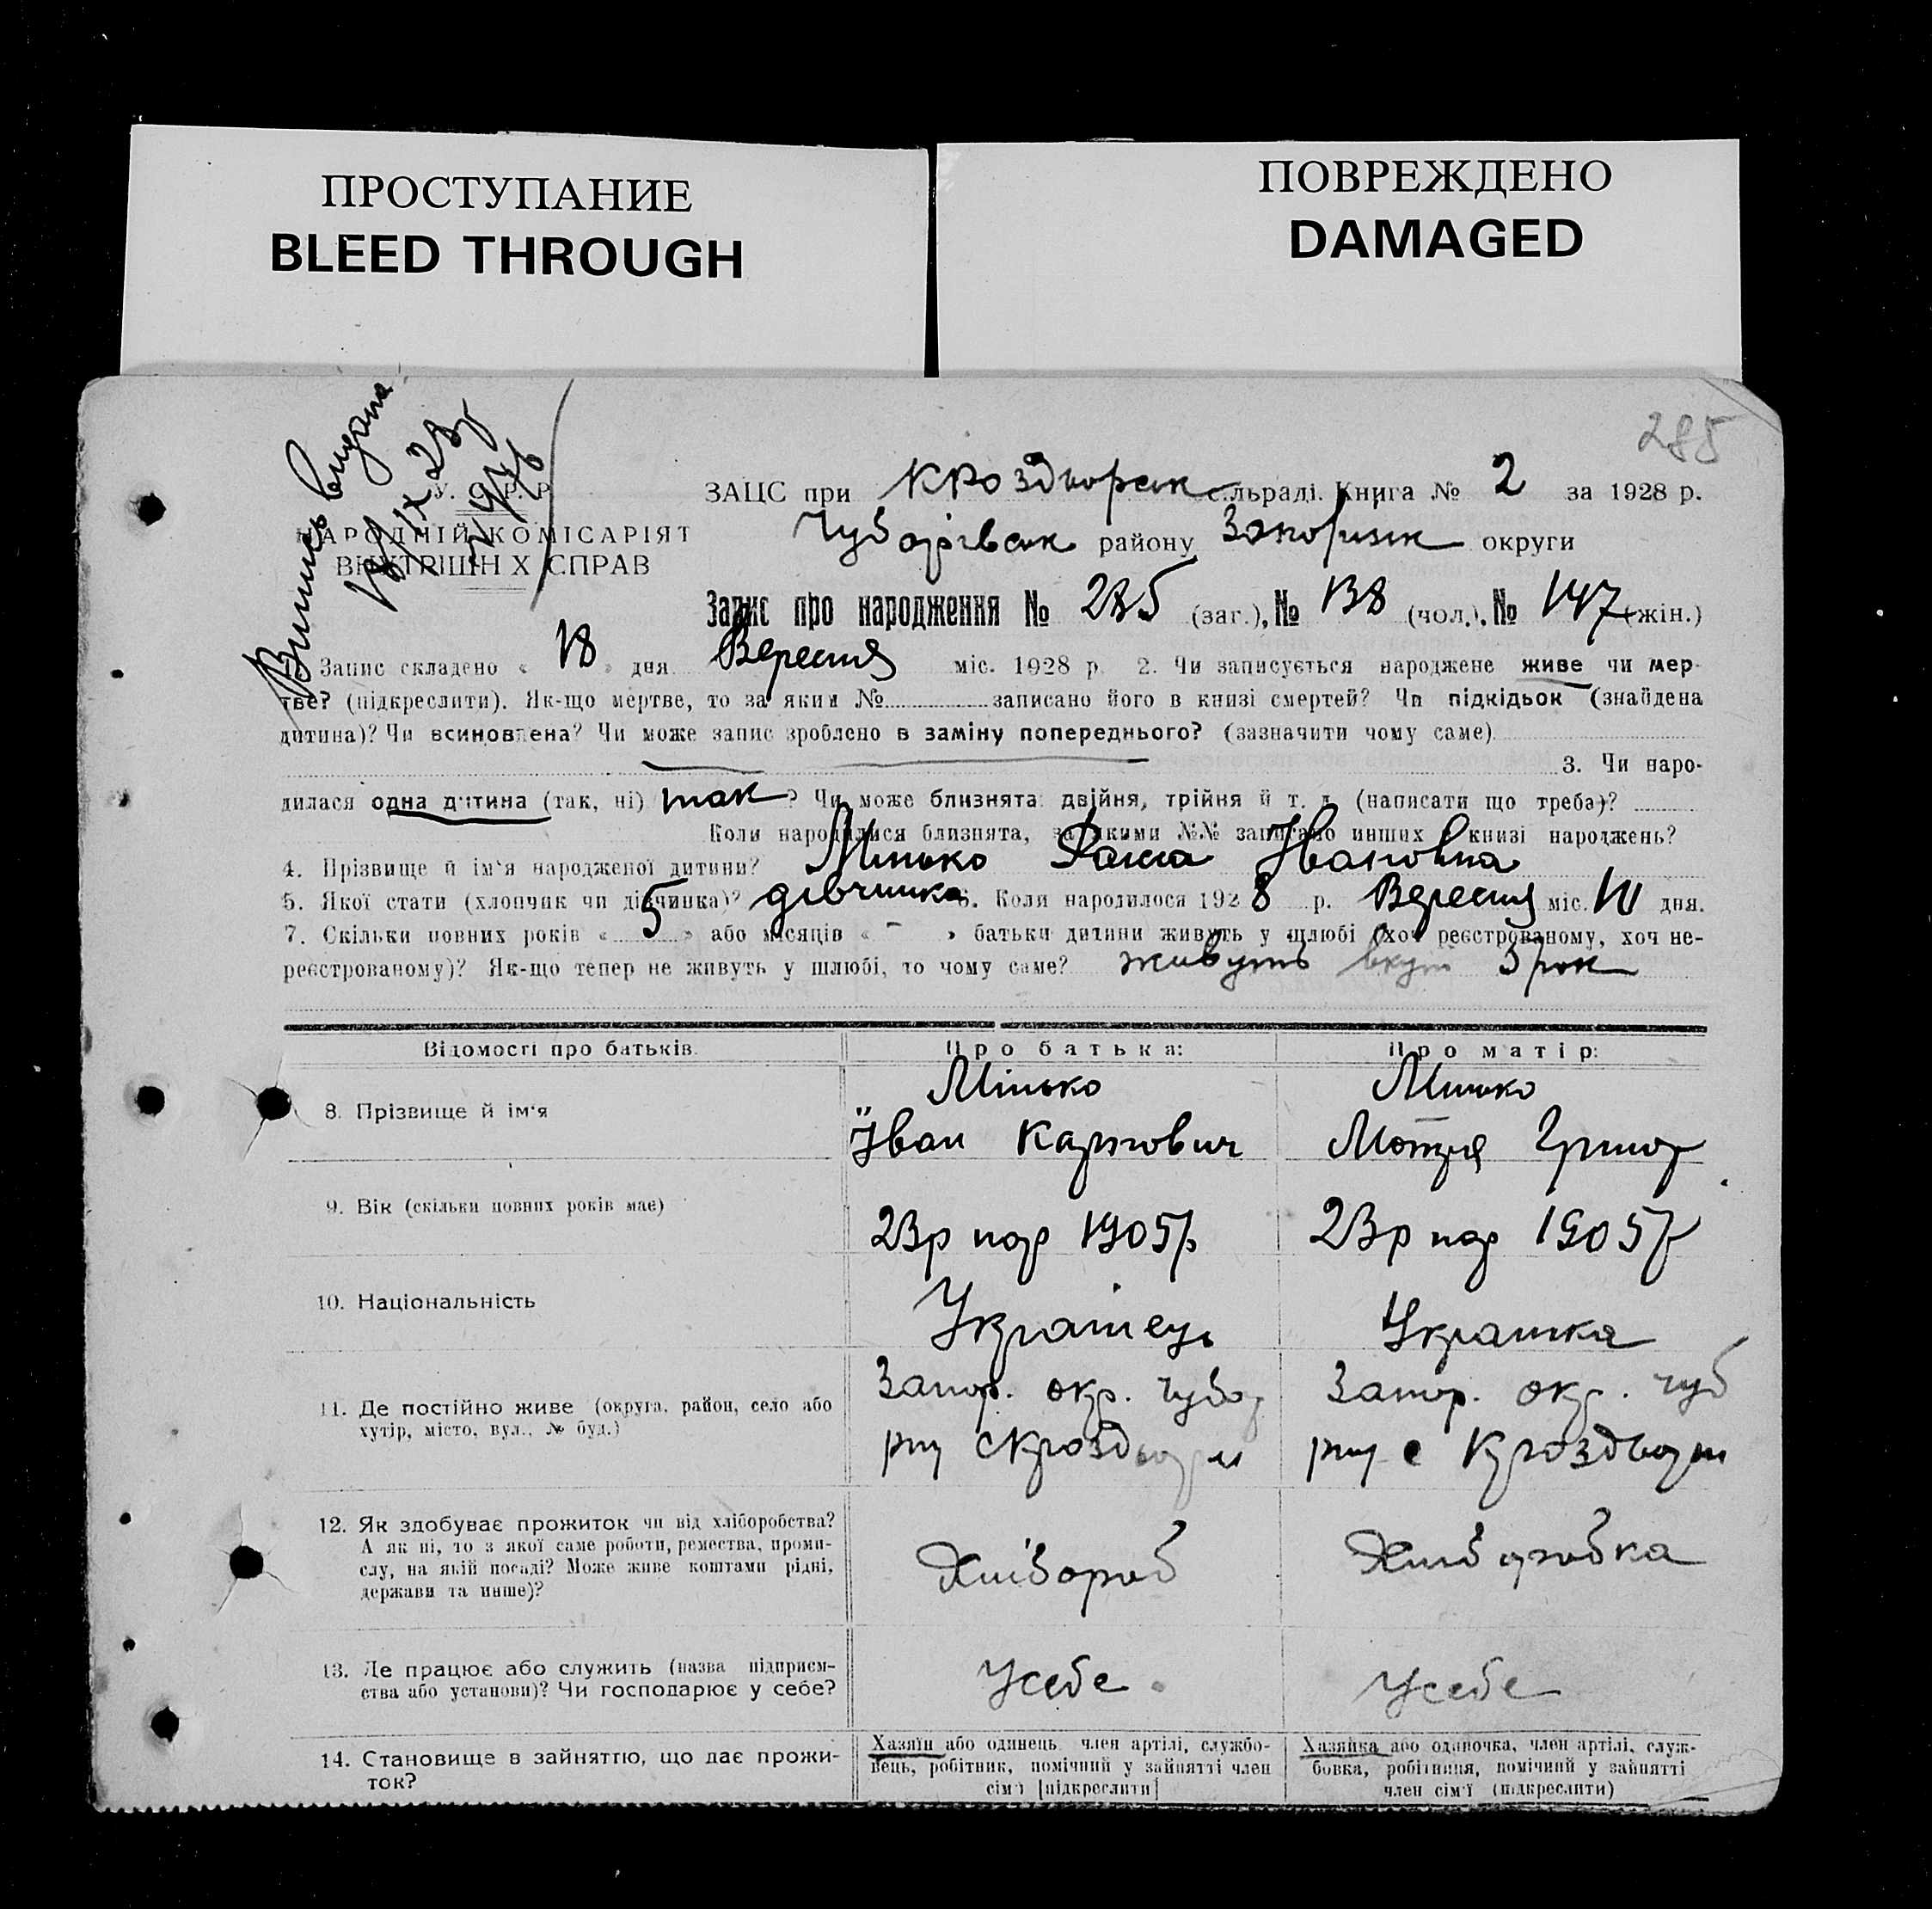 ПРОСТУПАНИЕ
BLEED THROUGH
ПОВРЕЖДЕНО
DAMAGED
285
Випись видана
18/IX 28р
У. С. Р. Р.
НАРОДНІЙ КОМІСАРІЯТ
ВНУТРІШНІХ СПРАВ
ЗАЦС при Кроздворск сільраді. Книга № 2 за 1928 р.
Чубарівськ району Запоризк округи
Запис про народження № 285 (заг.), № 138 (чол.), № 147 (жін.)
1. Запис складено « 18 » дня Вересня міс. 1928 р. 2. Чи записується народжене живе чи мер-
тве? (підкреслити). Як-що мертве, то за яким № записано його в книзі смертей? Чи підкідьок (знайдена
дитина)? Чи всиновлена? Чи може запис зроблено в заміну попереднього? (зазначити чому саме)
3. Чи наро-
дилася одна дитина (так, ні) так ? Чи може близнята: двійня, трійня й т. д. (написати що треба)?
Коли народилися близнята, за якими №№ записано инших в книзі народжень?
4. Прізвище й ім'я народженої дитини? Мінько Раиса Івановна
5. Якої стати (хлопчик чи дівчинка)? дівчинка 6. Коли народилося 1928 р. Вересня міс. 10 дня.
7. Скільки повних років « 5 » або місяців « – » батьки дитини живуть у шлюбі (хоч реєстрованому, хоч не-
реєстрованому)? Як-що тепер не живуть у шлюбі, то чому саме? живуть вкупі 5 рок
Відомості про батьків. Про батька: Про матір:
8. Прізвище й ім'я Мінько Минько
Іван Карпович Мотря Григор
9. Вік (скільки повних років має) 23р нар 1905р 23р нар 1905р
10. Національність Українець Українка
11. Де постійно живе (округа, район, село або Запор. окр. Чубар Запор. окр. Чуб
хутір, місто, вул., № буд.) рну с Кроздвори рну с Кроздвори
12. Як здобуває прожиток чи від хліборобства?
А як ні, то з якої саме роботи, ремества, проми-
слу, на якій посаді? Може живе коштами рідні, Хлібороб Хлиборобка
держави та инше)?
13. Де працює або служить (назва підприєм-
ства або установи)? Чи господарює у себе? Усебе Усебе
14. Становище в зайняттю, що дає прожи-
ток?
Хазяїн або одинець, член артілі, службо-
вець, робітник, помічний у зайнятті член
сім'ї [підкреслити]
Хазяйка або одиночка, член артілі, служ-
бовка, робітниця, помічний у зайнятті
член сім'ї (підкреслити)